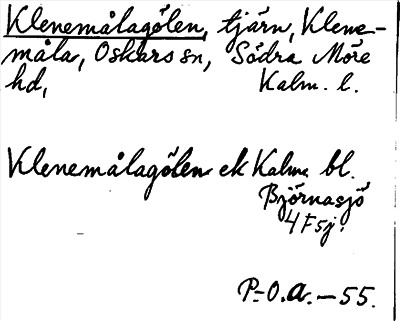 Klenemålagölen, tjärn, Klene-
måla, Oskars sn, Södra Möre
hd, Kalm. l.
Klenemålagölen ek Kalm. bl.
Björnasjö
4 F sj.
P.-O.a.-55.